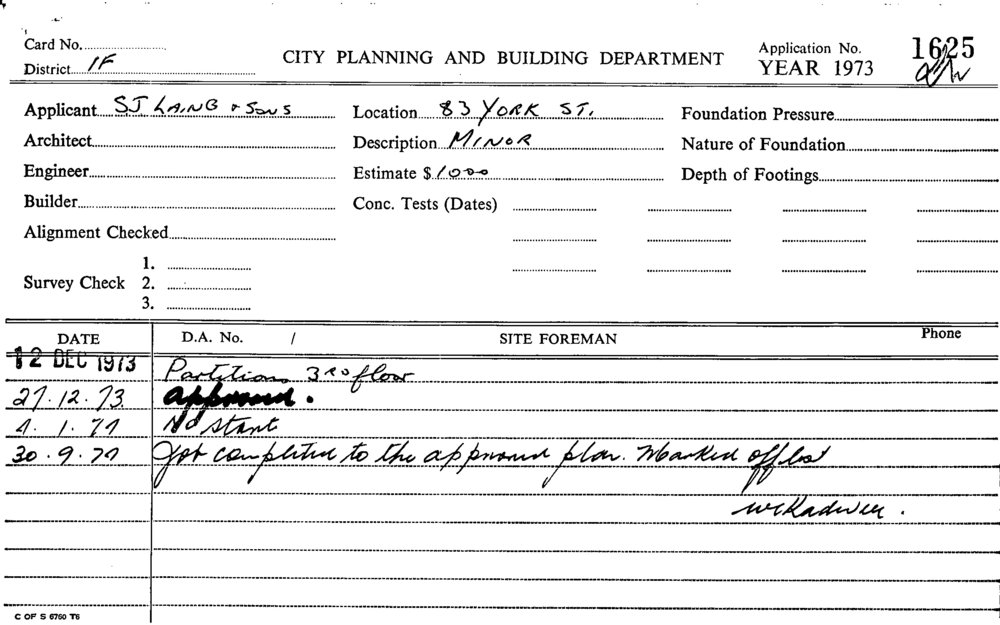 Card No.
District 1F
CITY PLANNING AND BUILDING DEPARTMENT
Application No. 1625
YEAR 1973
Applicant SJ LAING & SONS Location 83 YORK ST. Foundation Pressure
Architect Description MINOR Nature of Foundation
Engineer Estimate $ 1000 Depth of Footings
Builder Conc. Tests (Dates)
Alignment Checked
Survey Check 1.
2.
3.
DATE D.A. No. / SITE FOREMAN Phone
12 DEC 1973 Partitions 3RD floor
27.12.73. approved.
4.1.74 No start
30.9.74 Job completed to the approved plan. Marked off list
C OF S 6760 T6